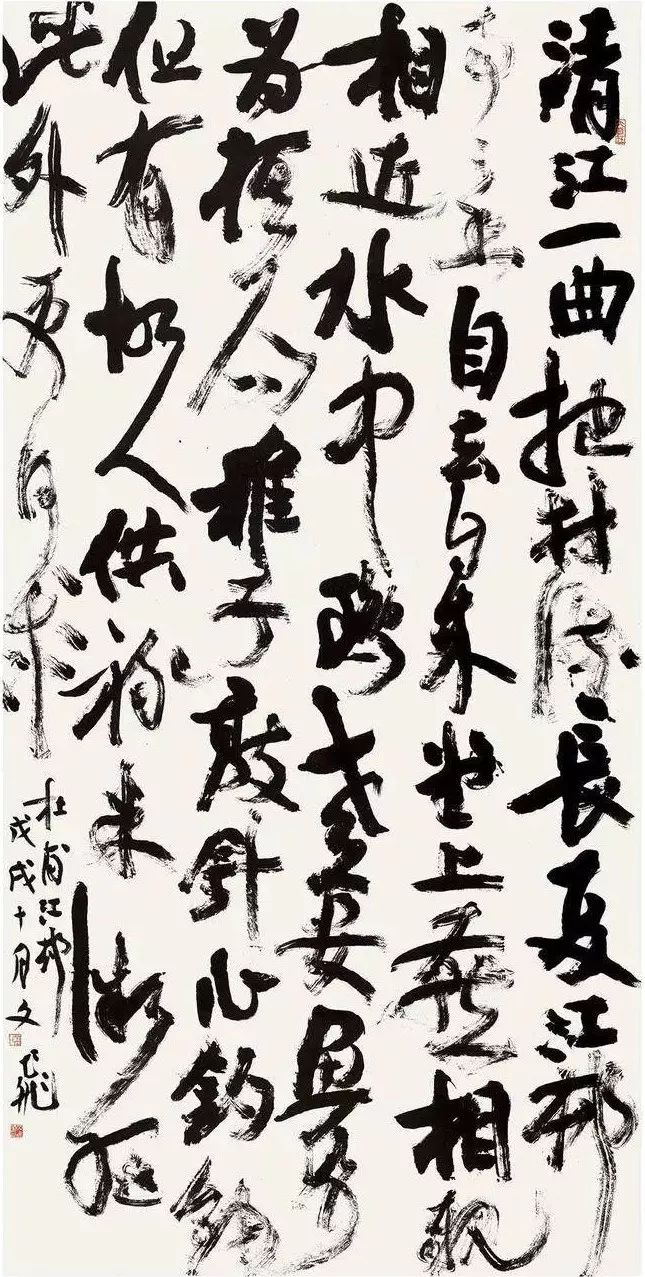 清江一曲抱村流長夏江邨
事々幽自去自来堂上燕相親
相近水中鸥老妻画纸
为棋局稚子敲針作釣鈎
但有故人供禄米微躯
此外更何求
杜甫江邨
戊戌十月文